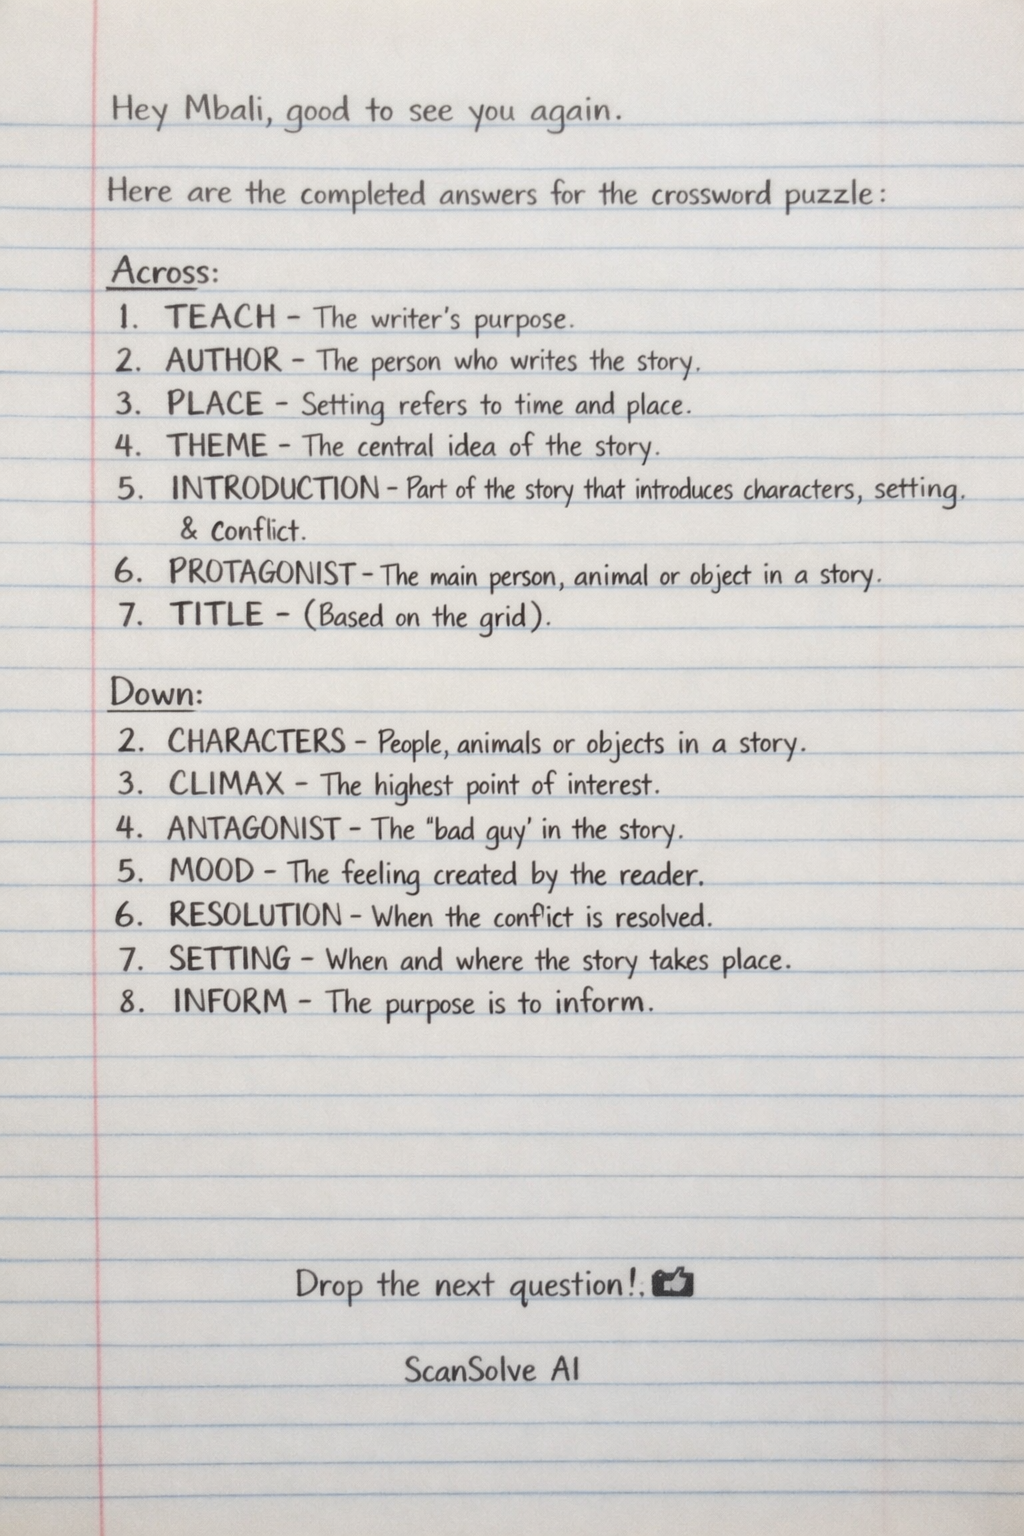 Hey Mbali, good to see you again.
Here are the completed answers for the crossword puzzle:
Across:
1. TEACH - The writer's purpose.
2. AUTHOR - The person who writes the story.
3. PLACE - Setting refers to time and place.
4. THEME - The central idea of the story.
5. INTRODUCTION - Part of the story that introduces characters, setting.
& Conflict.
6. PROTAGONIST - The main person, animal or object in a story.
7. TITLE - (Based on the grid).
Down:
2. CHARACTERS - People, animals or objects in a story.
3. CLIMAX - The highest point of interest.
4. ANTAGONIST - The "bad guy' in the story.
5. MOOD - The feeling created by the reader.
6. RESOLUTION - When the conflict is resolved.
7. SETTING - When and where the story takes place.
8. INFORM - The purpose is to inform.
Drop the next question!.
ScanSolve AI